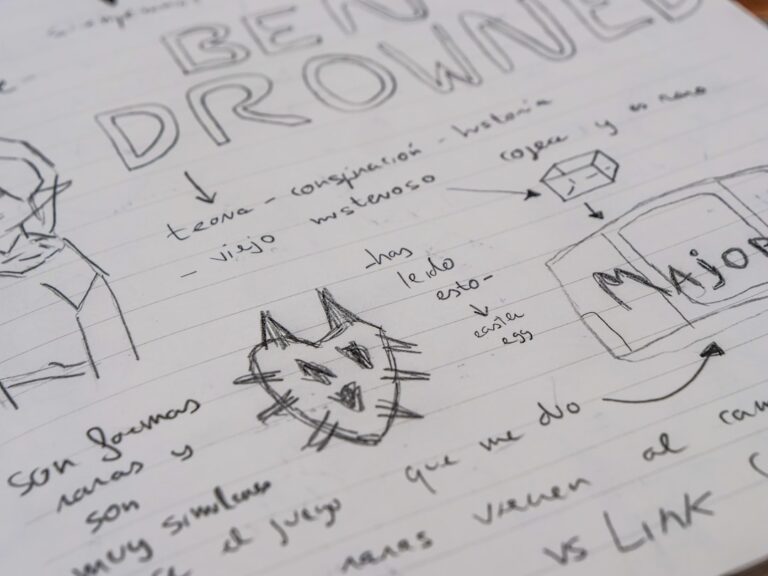 BEN
DROWNED
teoria - conspiración - historia
- viejo misterioso
coger y es raro
-has
leido
esto-
easter
egg
MAJOR
son formas
raras y
son
muy similares
el juego
que me dio
raras vienen al
vs LINK